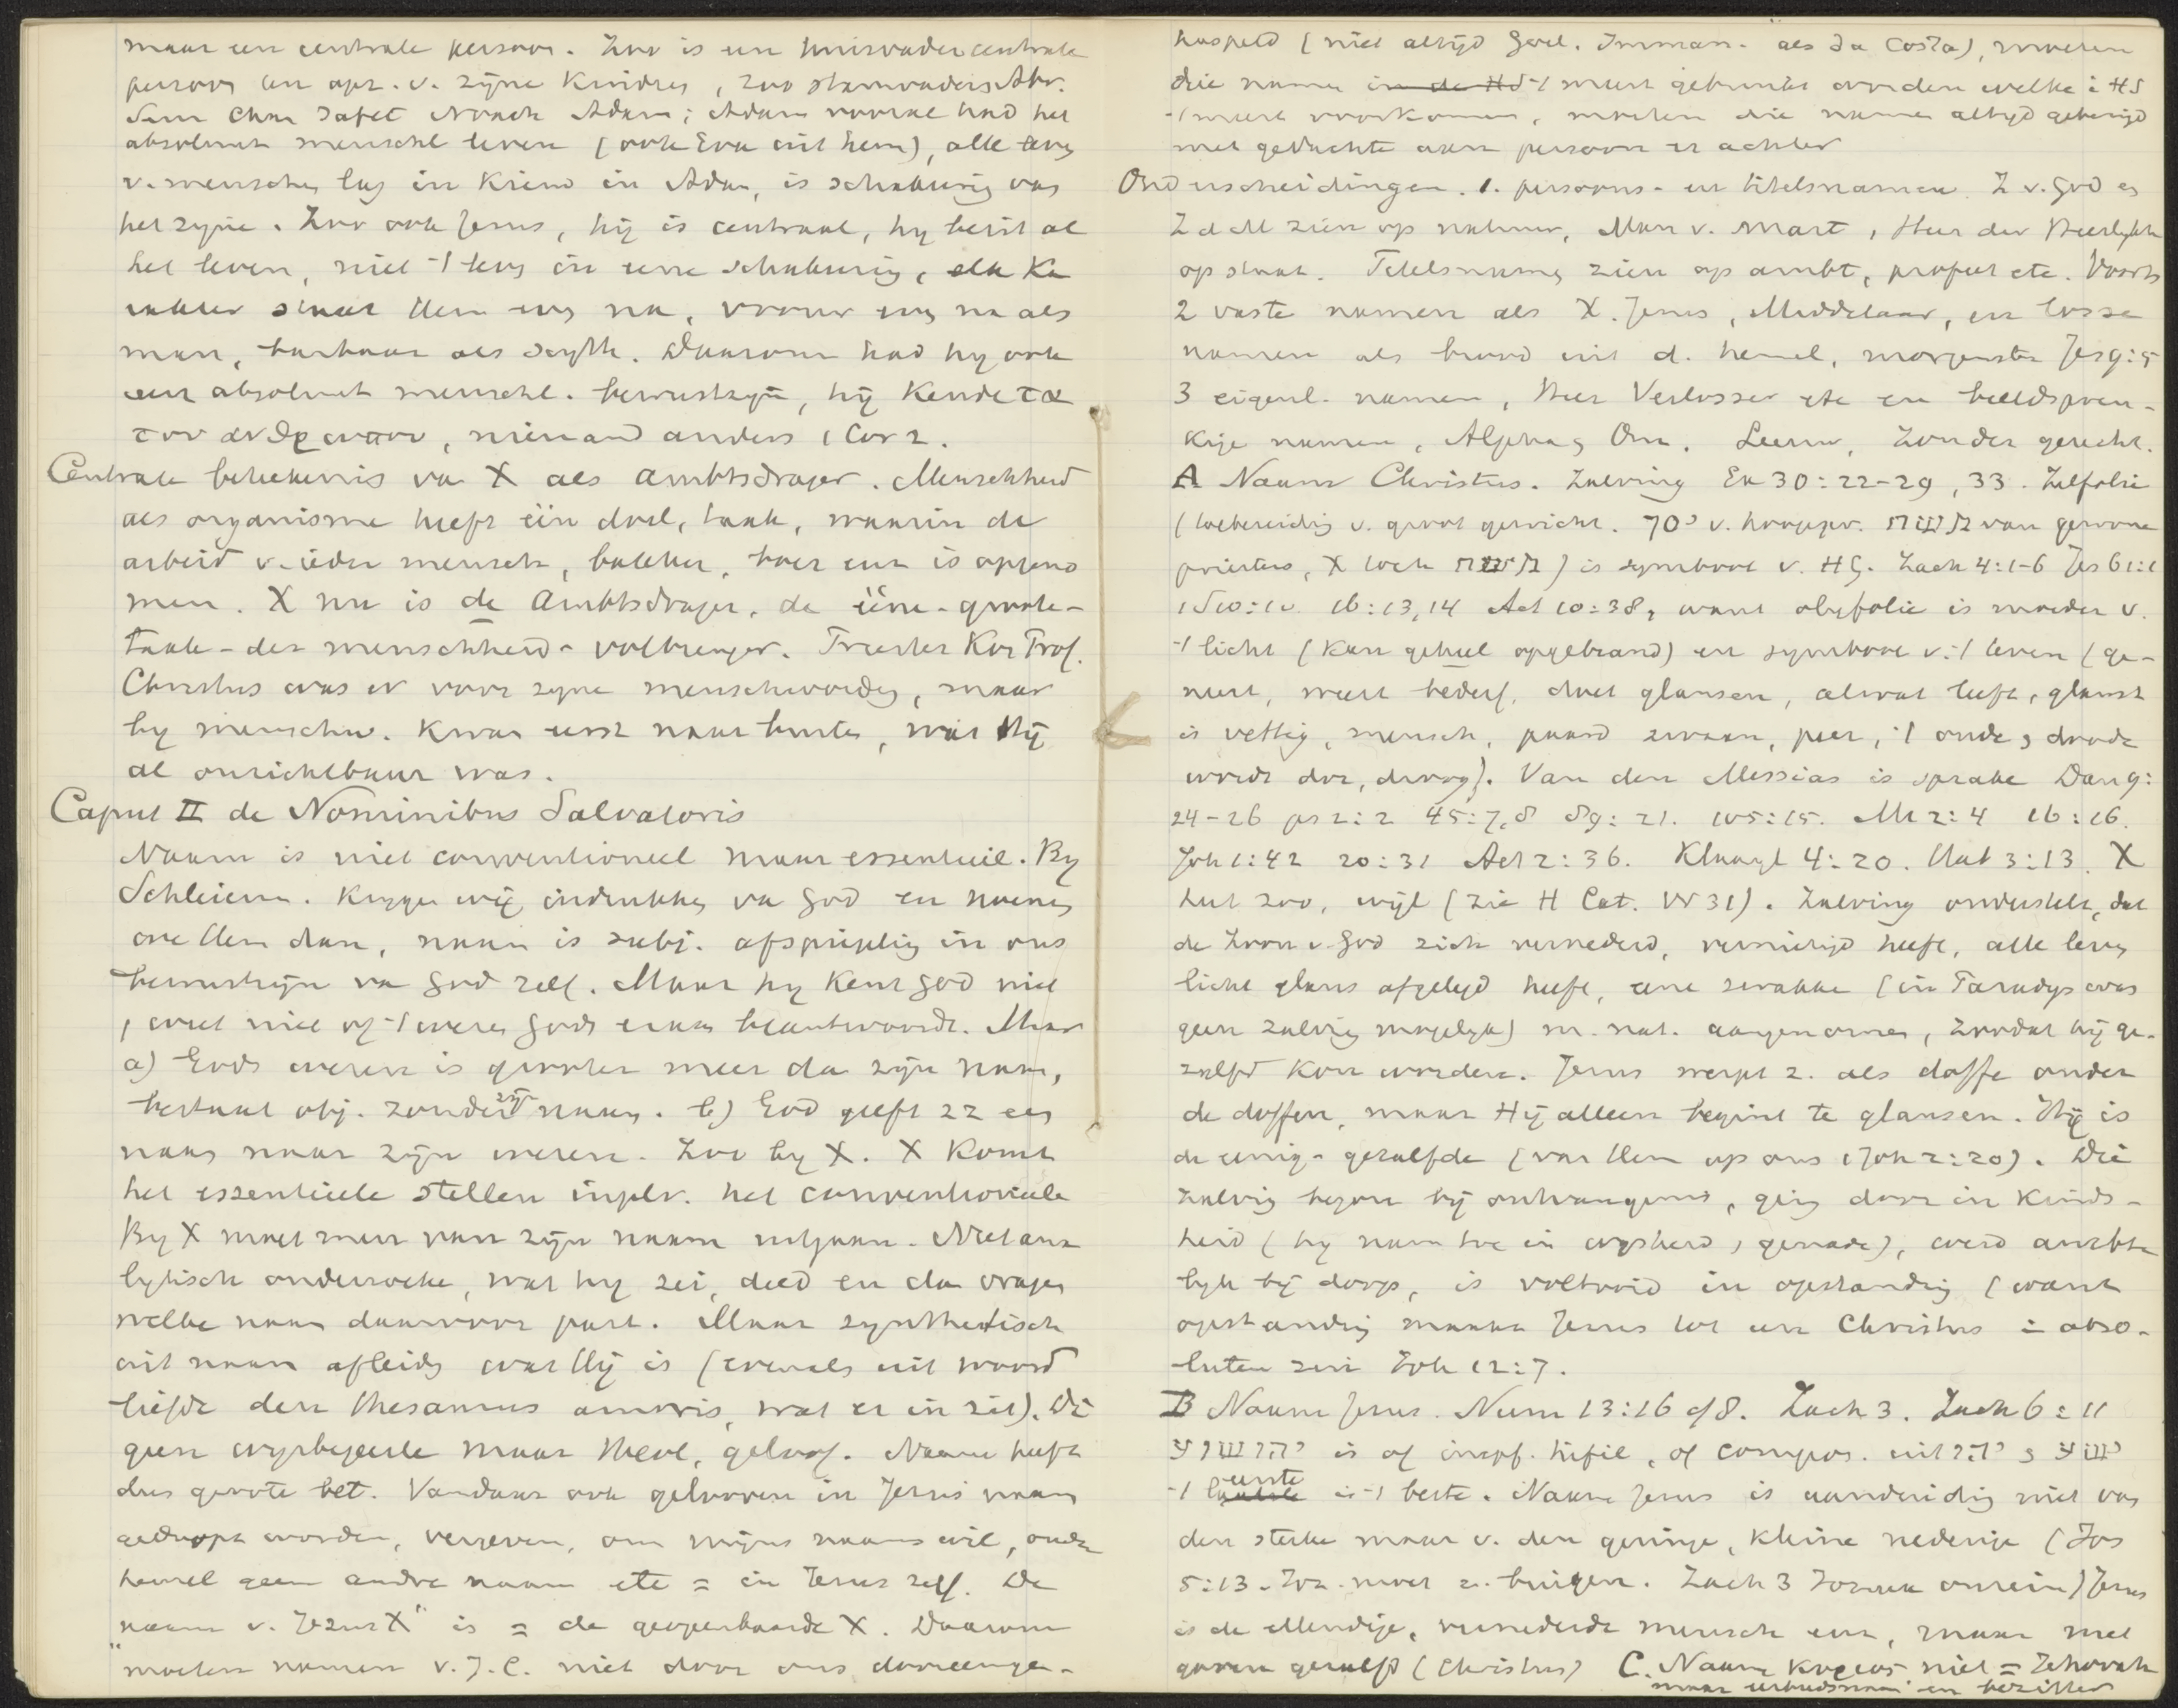 maar een centrale persoon. Zoo is een huisvader centrale
persoon ten opz. v. zijne kinders, zoo stamvaders Abr.
Sem Cham Jafet Noach Adam; Adam vooral had het
absoluut menschl leven (ook Eva uit hem), alle leven
v. menschen lag in kiem in Adam, is schakering van
het zijne. Zoo ook Jezus, hij is centraal, hy bezit al
het leven, niet -1 leven in eene schakering, elk ka
rakter staat Hem even na, vrouw even na als
man, barbaar als Scyth. Daarom had hy ook
een absoluut menschl. bewustzijn, hij kende τα
του ανθρωπου, niemand anders 1 Cor 2.
Centrale beteekenis van X als ambtsdrager. Menschheid
als organisme heeft één doel, taak, waarin de
arbeid v. ieder mensch, bakker, boer enz is opgeno
men. X nu is de Ambtsdrager, de ééne-groote-
taak-der menschheid-volbrenger. Priester Kon Prof.
Christus was er voor zyne menschwording, maar
by menschw. kwam eerst naar buiten, wat Hij
al onzichtbaar was.
Caput II de Nominibus Salvatoris
Naam is niet conventioneel maar essentieel. By
Schleierm. krygen wij indrukken van God en noemen
we Hem dan, naam is subj. afspiegeling in ons
bewustzijn van God zelf. Maar hy kent God niet
, weet niet of -1 wezen Gods eraan beantwoordt. Maar
a) Gods wezen is grooter meer dan zijn naam,
bestaat obj. zonder zijn naam. b) God geeft zz een
naam naar zijn wezen. Zoo by X. X komt
het essentieele stellen in plv. het conventioneele
By X moet men van zijn naam uitgaan. Niet ana
lytisch onderzoeke, wat hy zei, deed en dan vragen
welke naam daarvoor past. Maar synthetisch
uit naam afleiden wat Hij is (evenals uit woord
liefde den thesaurus amoris, wat er in zit). Di
geen wysbegeerte maar theol, geloof. Naam heeft
dus groote bet. Vandaar ook gelooven in Jezus naam
gedoopt worden, vergeven, om mijns naams wil, onder
hemel geen andre naam etc = in Jezus zelf. De
"naam v. Jezus X" is = de geopenbaarde X. Daarom
moeten namen v. J.C. niet door ons dooreenge-
haspeld (niet altijd Goel. Imman. als da Costa), moeten
die namen in de HS -1 meest gebruikt worden welke i HS
-1 meest voorkomen, moeten die namen altijd gebezigd
met gedachte aan persoon er achter
Onderscheidingen. 1. persoons- en titelsnamen. Z v. God en
Z d M zien op natuur, Man v. smart, Heer der Heerlykh
op staat. Titelsnamen zien op ambt, profeet etc. Voorts
2 vaste namen als X. Jezus, Middelaar, en losse
namen als brood uit d. hemel, morgenster Jes 9:5
3 eigenl. namen, Heer Verlosser etc en beeldspreu-
kige namen, Alpha en Om. Leeuw, Zon der gerecht.
A Naam Christus. Zalving Ex 30:22-29, 33. Zalfolie
(toebereiding v. groot gewicht. v. hoogepr. van gewone
priesters, X toch ) is symbool v. HG. Zach 4:1-6 Jes 61:1
1 S 10:10. 16:13,14 Act 10:38, want olyfolie is moeder v.
-1 licht (kan geheel opgebrand) en symbool v. -1 leven (ge-
neest, weert bederf, doet glanzen, alwat leeft, glanst
is vettig, mensch, paard zwaan, peer, -1 oude en doode
wordt dor, droog). Van den Messias is sprake Dan 9:
24-26 ps 2:2 45:7,8 89:21. 105:15. Mt 2:4 16:16.
Joh 1:42 20:31 Act 2:36. Klaagl 4:20. Hab 3:13. X
heet zoo, wijl (zie H Cat. Vr 31). Zalving onderstelt, dat
de Zoon v. God zich vernederd, vernietigd heeft, alle leven
licht glans afgelegd heeft, eene zwakke (in Paradys was
geen zalving mogelyk) m. nat. aangenomen, zoodat hij ge-
zalfd kon worden. Jezus werpt z. als doffe onder
de doffen, maar Hij alleen begint te glansen. Hij is
de eenig-gezalfde (van Hem op ons 1 Joh 2:20). Die
zalving begon bij ontvangenis, ging door in kinds-
heid (hy nam toe in wysheid, genade), werd ambte
lyk bij doop, is voltooid in opstanding (want
opstanding maakt Jezus tot een Christus in abso-
luten zin Joh 12:7.
B Naam Jezus. Num 13:16 of 8. Zach 3. Zach 6:11
יהושוע is of impf. hifil, of compos. uit יהו en ישע
-1 eerste is -1 beste. Naam Jezus is aanduiding niet van
den sterke maar v. den geringe, kleine nederige (Jos
5:13. Joz. moet z. buigen. Zach 3 Jozua onrein) Jezus
is de ellendige, vernederde mensch enz, maar met
gaven gezalfd (Christus) C. Naam Κυριος niet = Jehovah
maar en bezitter